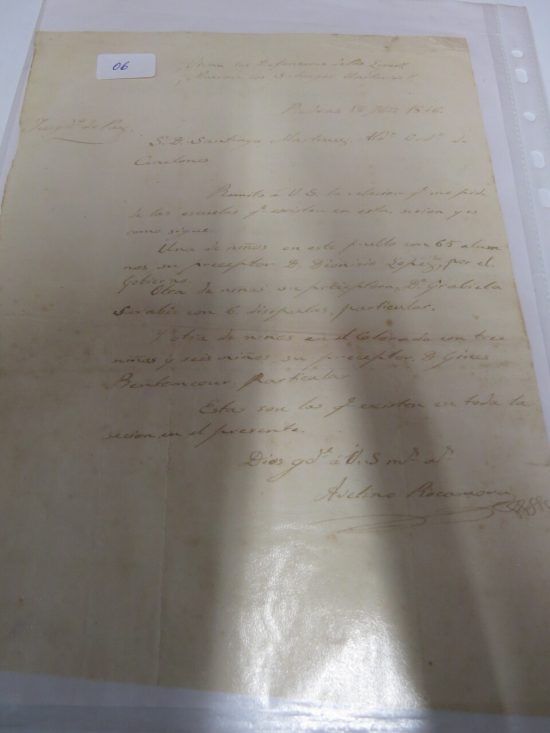 06
¡Vivan los Defensores de las Leyes!
¡Mueran los Salvajes Unitarios!
Piedras 18 1846.
Juzgdo. de Paz
S. D. Santiago Martinez Alde. Ordo. de
Canelones
Remito á V.S. la relacion q.e me pide
de las escuelas q.e existen en esta secion y es
como sigue
Una de niños en este pueblo con 65 alum
nos su preceptor D. Dionicio Lopez, por el
Gobierno.
Otra de niñas su preceptora, Da. Grabiela
con 6 disipulas, particular.
Y otra de niños en el Colorado con tres
niñas y seis niños su preceptor D. Gines
Bentancour, particular
Estas son las q.e existen en toda la
secion en el presente.
Dios gde. á V.S ms. as.
Avelino Rocamora